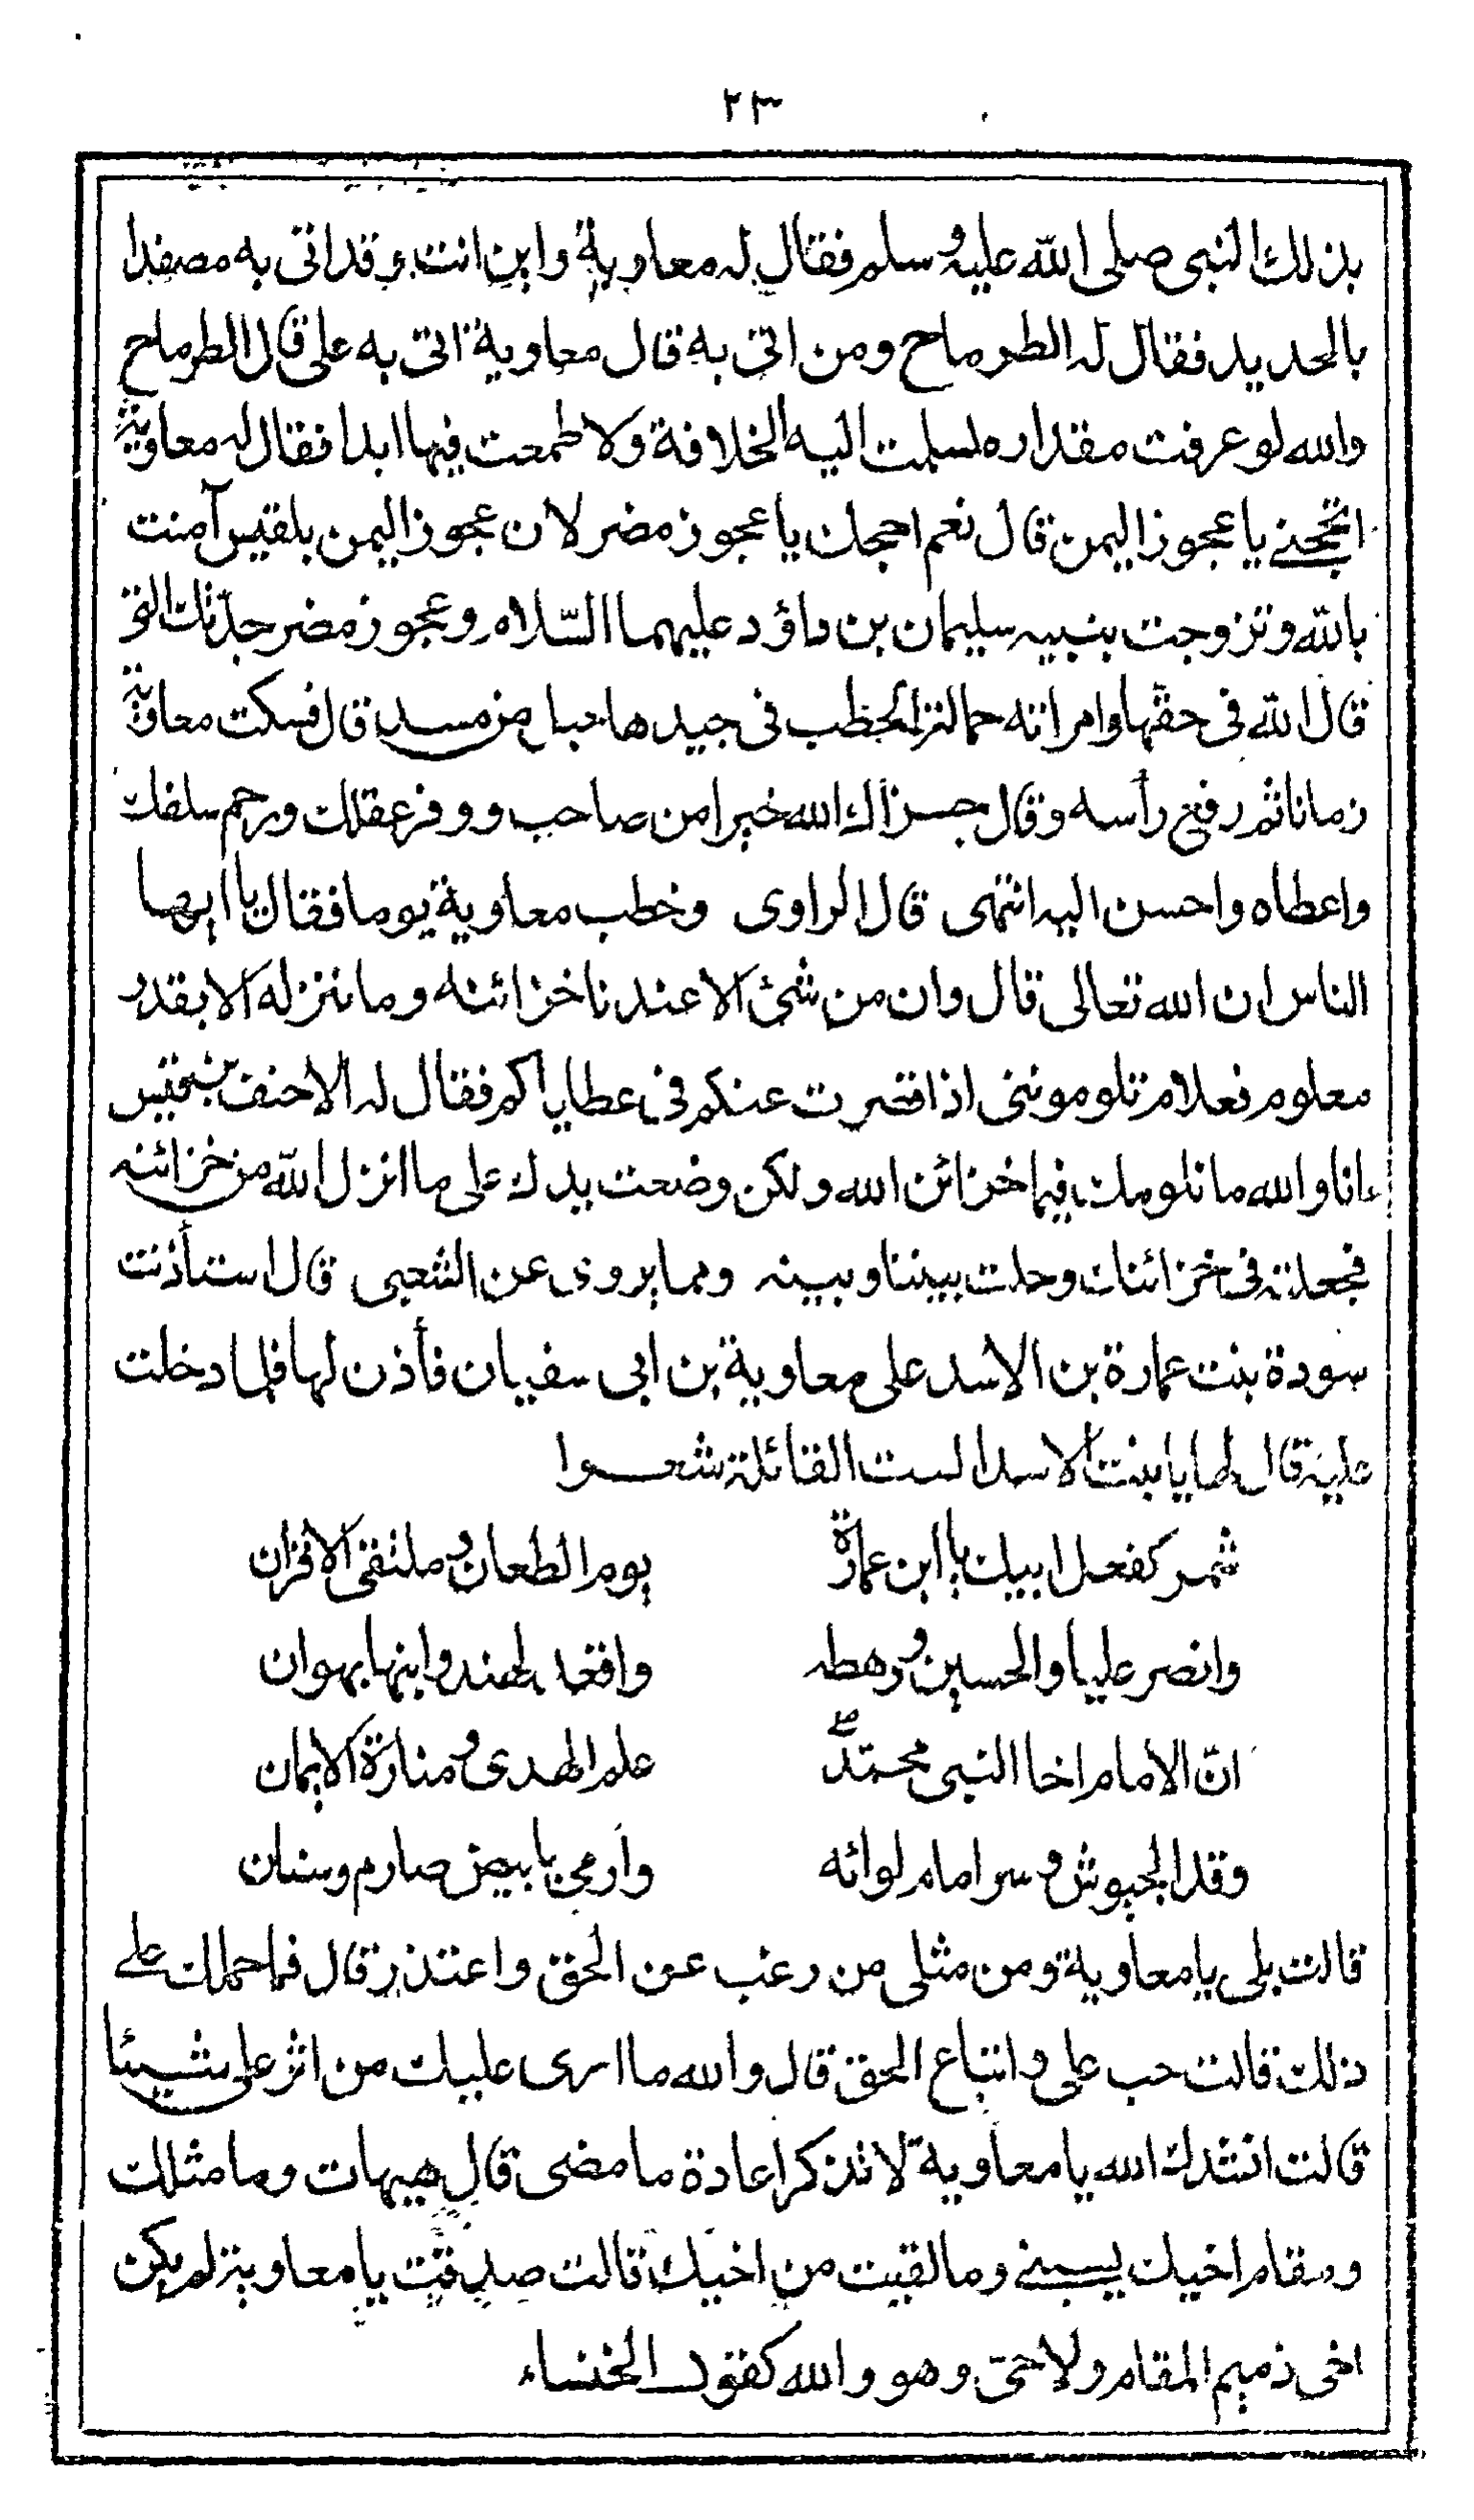 ٢٣
بذلك النبى صلى الله عليه وسلم فقال له معاوية واين انت وقد اتى به مصفدا
بالحديد فقال له الطرماح ومن اتى به قال معاوية اتى به على قال الطرماح
والله لو عرفت مقداره لسلمت اليه الخلافة ولا طمعت فيها ابدا فقال له معاوية
اتحجنے يا عجوز اليمن قال نعم احجك يا عجوز مضر لان عجوز اليمن بلقيس آمنت
بالله وتزوجت بنبيه سليمان بن داؤد عليهما السّلام وعجوز مضر جدّتك التى
قال الله فى حقّها وامراته حمالة الحطب فى جيدها حبل من مسد قال فسكت معاوية
زمانا ثم رفع رأسه وقال جزاك الله خيرا من صاحب ووفر عقلك ورحم سلفك
واعطاه واحسن اليه انتهى قال الراوى وخطب معاوية يوما فقال يا ايها
الناس ان الله تعالى قال وان من شئ الا عندنا خزائنه وما ننزله الا بقدر
معلوم فعلام تلوموننى اذا قصرت عنكم فى عطاياكم فقال له الاحنف بن قيس
انا والله ما نلومك فيما خزائن الله ولكن وضعت يدك على ما انزل الله من خزائنه
فجعلته فى خزائنك وحلت بيننا وبينه ومما يروى عن الشعبى قال استأذنت
سودة بنت عمارة بن الاسد على معاوية بن ابى سفيان فأذن لها فلما دخلت
عليه قال لها يا بنت الاسد الست القائلة شعرا
شمر كفعل ابيك يا ابن عمارة يوم الطعان وملتقى الاقران
وانصر عليا والحسين ورهطه واقصد لهند وابنها بهوان
انّ الامام اخا النبى محمّد علم الهدى ومنارة الايمان
وقد الجيوش وسر امام لوائه وارمى بابيض صارم وسنان
قالت بلى يا معاوية ومن مثلى من رغب عن الحق واعتذر قال فما حملك علے
ذلك قالت حب على واتباع الحق قال والله ما ارى عليك من اثر على شيئا
قالت انشدك الله يا معاوية لا تذكر اعادة ما مضى قال هيهات وما مثلك
ومقام اخيك يسبنے وما لقيت من اخيك قالت صدقت يا معاوية لم يكن
اخى ذميم المقام ولا خفى وهو والله كقول الخنساء